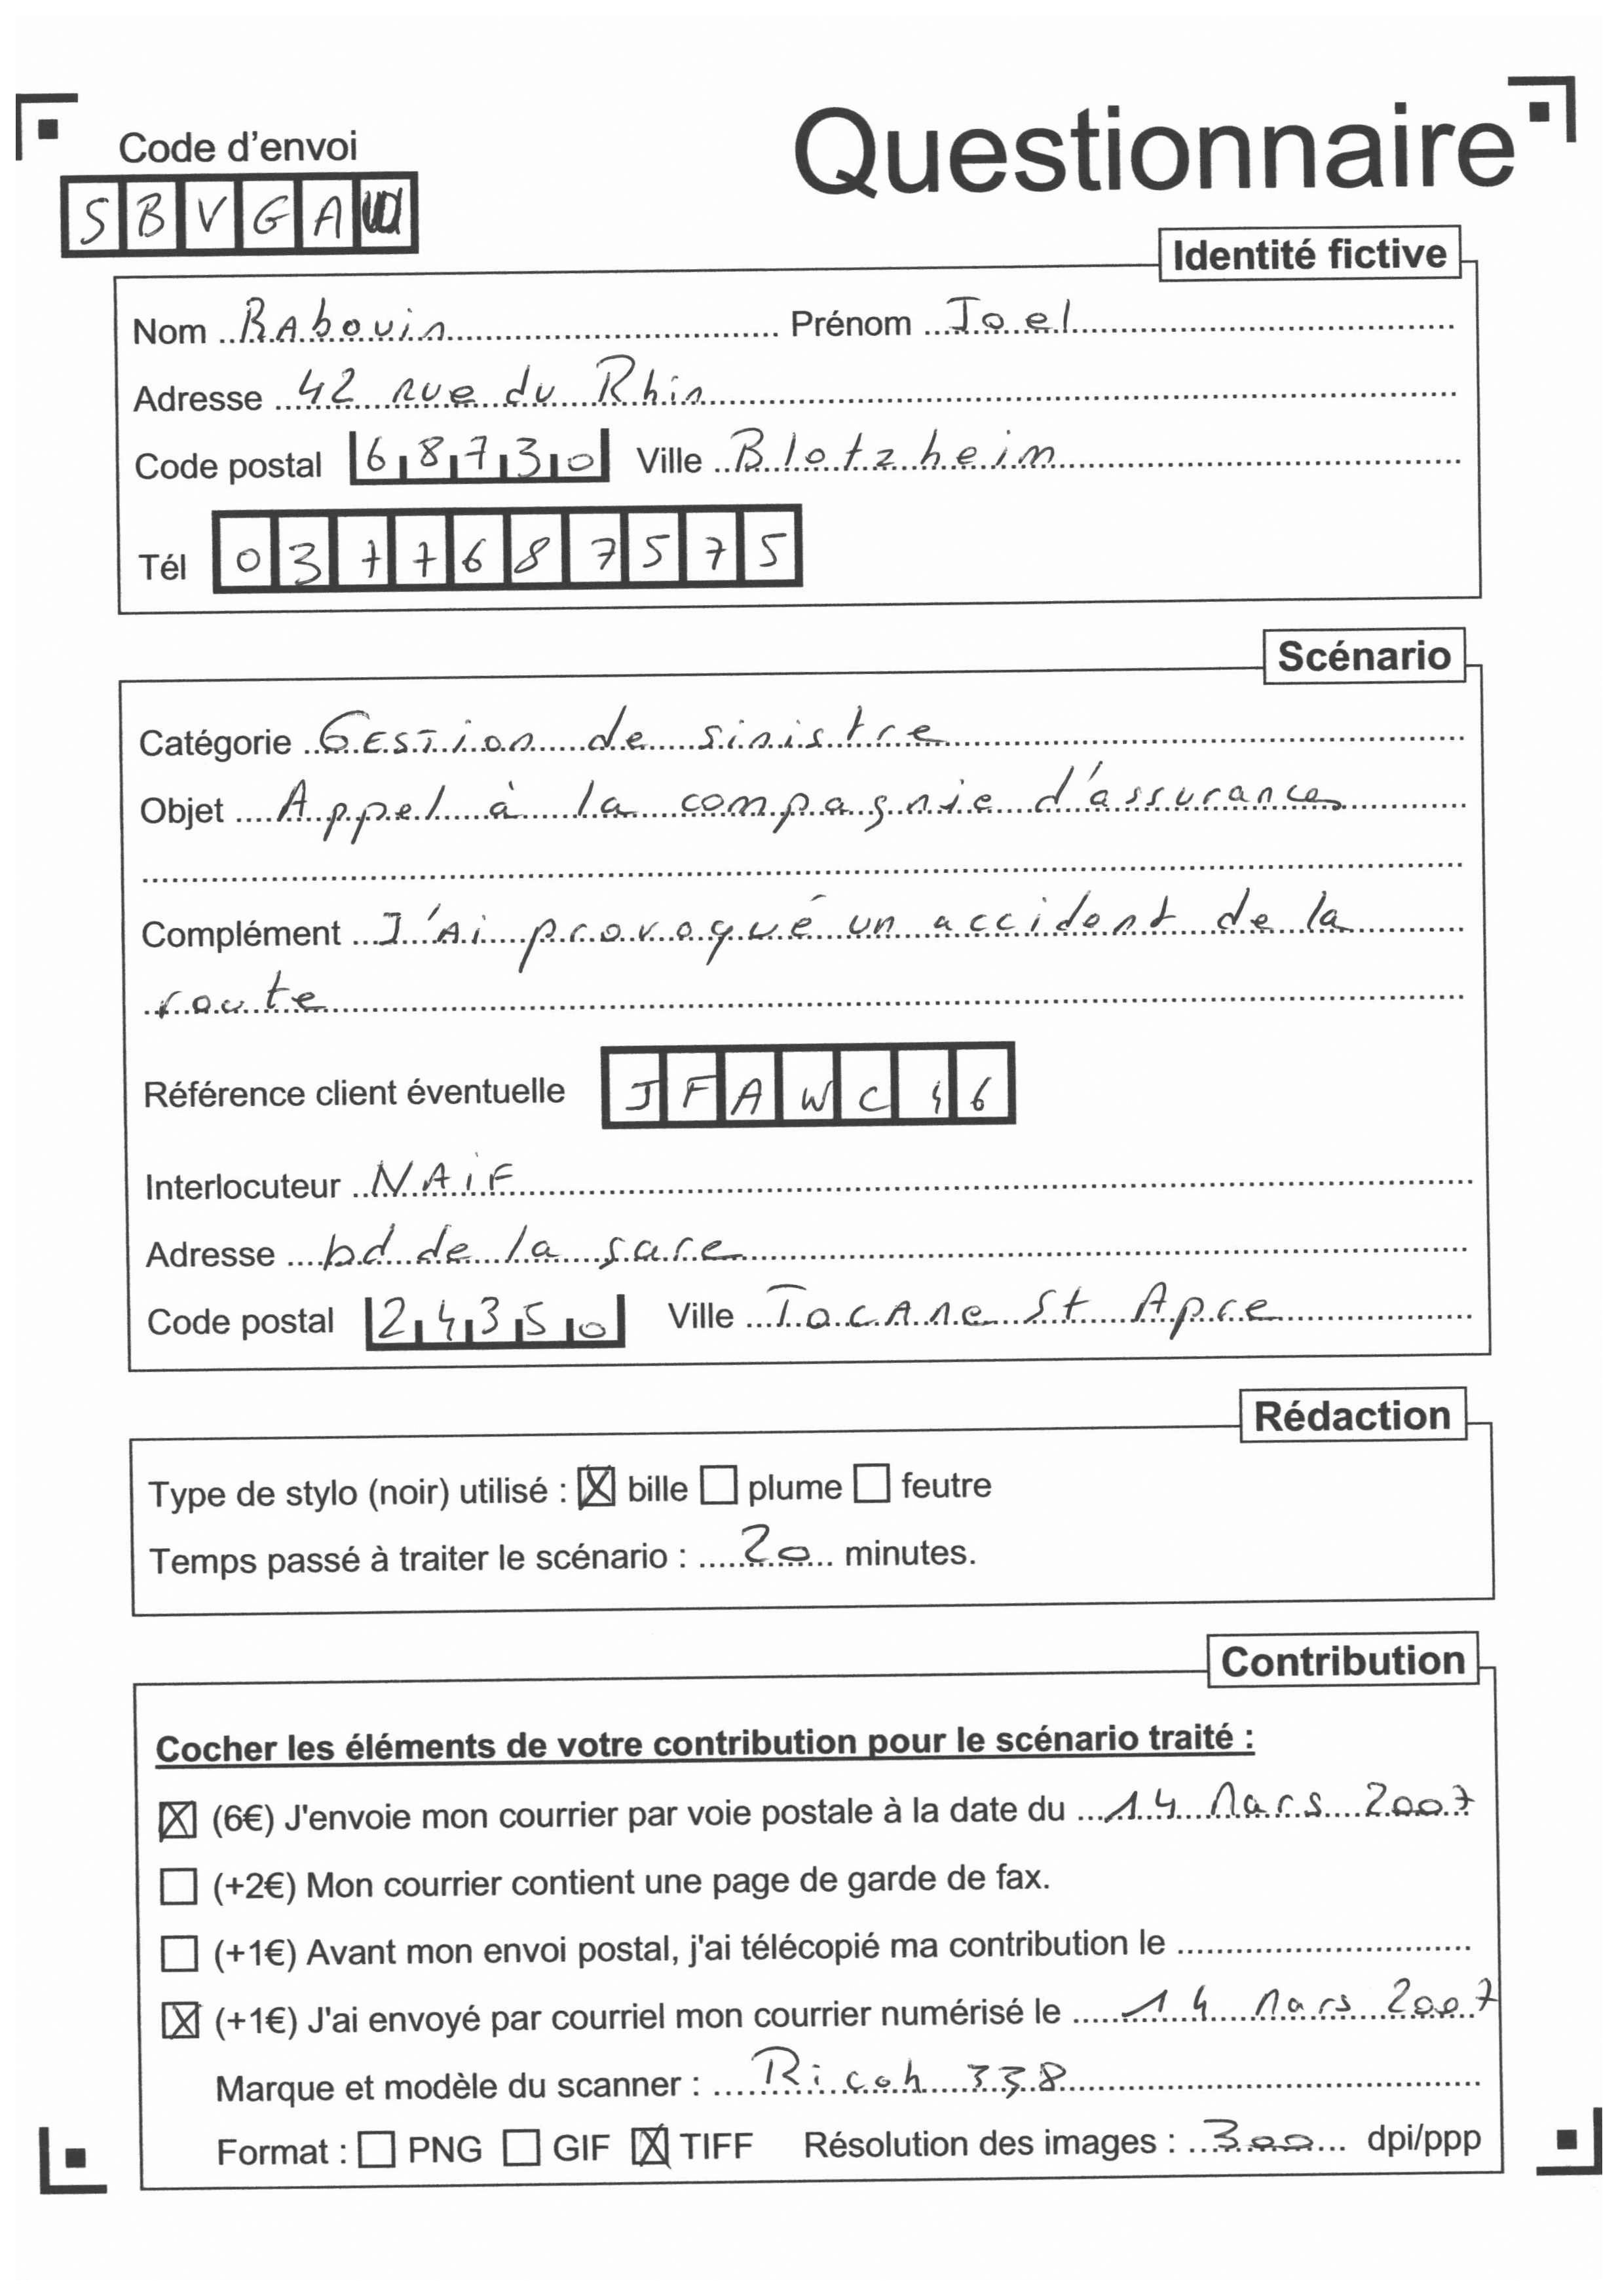 Questionnaire
Code d'envoi
S B V G A
Identité fictive
Nom RAbouin Prénom Joel
Adresse 42 rue du Rhin
Code postal 68730 Ville Blotzheim
Tél 0377687575
Scénario
Catégorie GESTion de sinistre
Objet Appel à la compagnie d'assurances
Complément J'Ai provoqué un accident de la
route
Référence client éventuelle JFAWC46
Interlocuteur NAiF
Adresse bd de la sare
Code postal 24350 Ville TocANe St Apre
Rédaction
Type de stylo (noir) utilisé : ☒ bille ☐ plume ☐ feutre
Temps passé à traiter le scénario : 20 minutes.
Contribution
Cocher les éléments de votre contribution pour le scénario traité :
☒ (6€) J'envoie mon courrier par voie postale à la date du 14 Mars 2007
☐ (+2€) Mon courrier contient une page de garde de fax.
☐ (+1€) Avant mon envoi postal, j'ai télécopié ma contribution le
☒ (+1€) J'ai envoyé par courriel mon courrier numérisé le 14 Mars 2007
Marque et modèle du scanner : Ricoh 338
Format : ☐ PNG ☐ GIF ☒ TIFF Résolution des images : 300 dpi/ppp